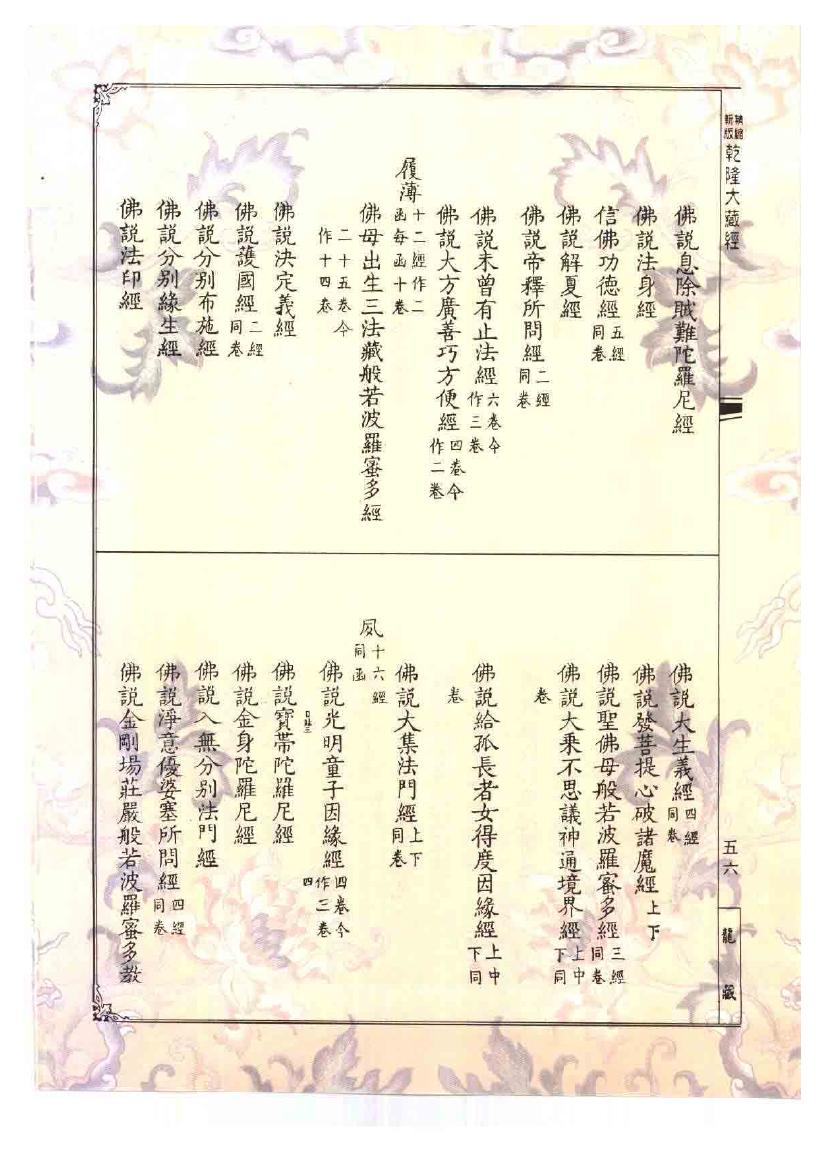 精縮
新版
乾隆大藏經
佛說息除賊難陀羅尼經
佛說法身經
信佛功德經五經
同卷
佛說解夏經
佛說帝釋所問經二經
同卷
佛說未曾有止法經六卷今
作三卷
佛說大方廣善巧方便經四卷今
作二卷
履薄十二經作二
函每函十卷
佛母出生三法藏般若波羅蜜多經
二十五卷今
作十四卷
佛說決定義經
佛說護國經二經
同卷
佛說分別布施經
佛說分別緣生經
佛說法印經
佛說大生義經四經
同卷
佛說發菩提心破諸魔經上下
佛說聖佛母般若波羅蜜多經三經
同卷
佛說大乘不思議神通境界經上中
下同
卷
佛說給孤長者女得度因緣經上中
下同
卷
佛說大集法門經上下
同卷
夙十六經
同函
佛說光明童子因緣經四卷今
作三卷
四
佛說寶帶陀羅尼經
佛說金身陀羅尼經
佛說入無分別法門經
佛說淨意優婆塞所問經四經
同卷
佛說金剛場莊嚴般若波羅蜜多教
五六
龍藏